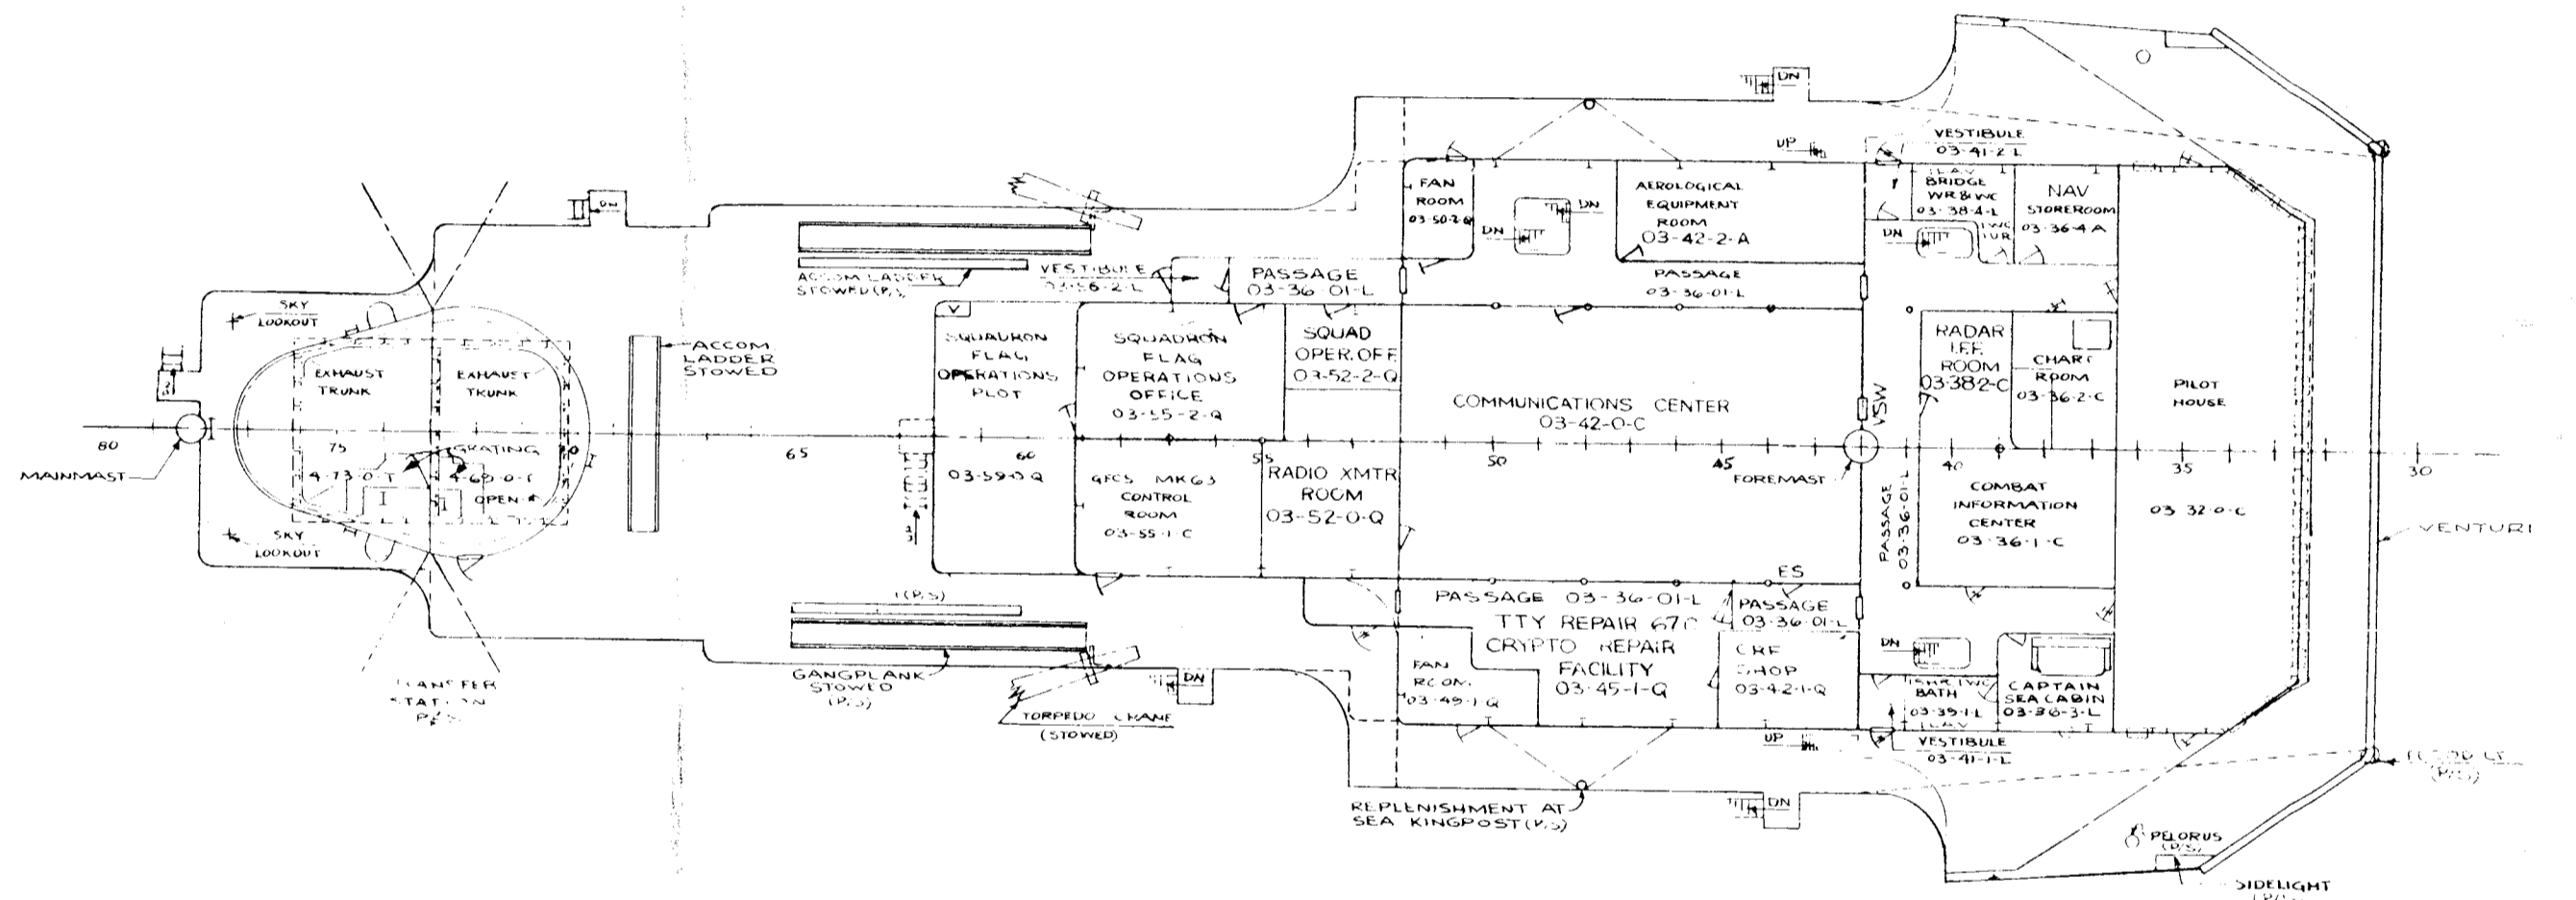 DN
VESTIBULE
03-41-2-L
UP
FAN
ROOM
03-50-2-Q
DN
DN
AEROLOGICAL
EQUIPMENT
ROOM
03-42-2-A
BRIDGE
WR & WC
03-38-4-L
NAV
STOREROOM
03-36-4-A
DN
DN
ACCOM LADDER
STOWED (P/S)
VESTIBULE
03-56-2-L
PASSAGE
03-36-01-L
PASSAGE
03-36-01-L
SKY
LOOKOUT
ACCOM
LADDER
STOWED
EXHAUST
TRUNK
EXHAUST
TRUNK
SQUADRON
FLAG
OPERATIONS
PLOT
SQUADRON
FLAG
OPERATIONS
OFFICE
03-55-2-Q
SQUAD
OPER. OFF.
03-52-2-Q
COMMUNICATIONS CENTER
03-42-0-C
VSW
RADAR
I.F.F.
ROOM
03-38-2-C
CHART
ROOM
03-36-2-C
PILOT
HOUSE
80
75
GRATING
65
60
55
50
45
40
35
30
MAINMAST
4-73-0-T
4-69-0-T
OPEN
UP
03-59-0-Q
GFCS MK63
CONTROL
ROOM
03-55-1-C
RADIO XMTR
ROOM
03-52-0-Q
FOREMAST
PASSAGE
03-36-01-L
COMBAT
INFORMATION
CENTER
03-36-1-C
03-32-0-C
VENTURI
SKY
LOOKOUT
(P/S)
ES
PASSAGE 03-36-01-L
PASSAGE
03-36-01-L
TTY REPAIR 670
CRYPTO REPAIR
FACILITY
03-45-1-Q
SHOP
03-42-1-Q
FAN
ROOM
03-49-1-Q
DN
BATH
03-39-1-L
CAPTAIN
SEA CABIN
03-36-3-L
TRANSFER
STATION
P/S
GANGPLANK
STOWED
(P/S)
TORPEDO CRANE
(STOWED)
DN
UP
VESTIBULE
03-41-1-L
(P/S)
REPLENISHMENT AT
SEA KINGPOST (P/S)
DN
PELORUS
(P/S)
SIDELIGHT